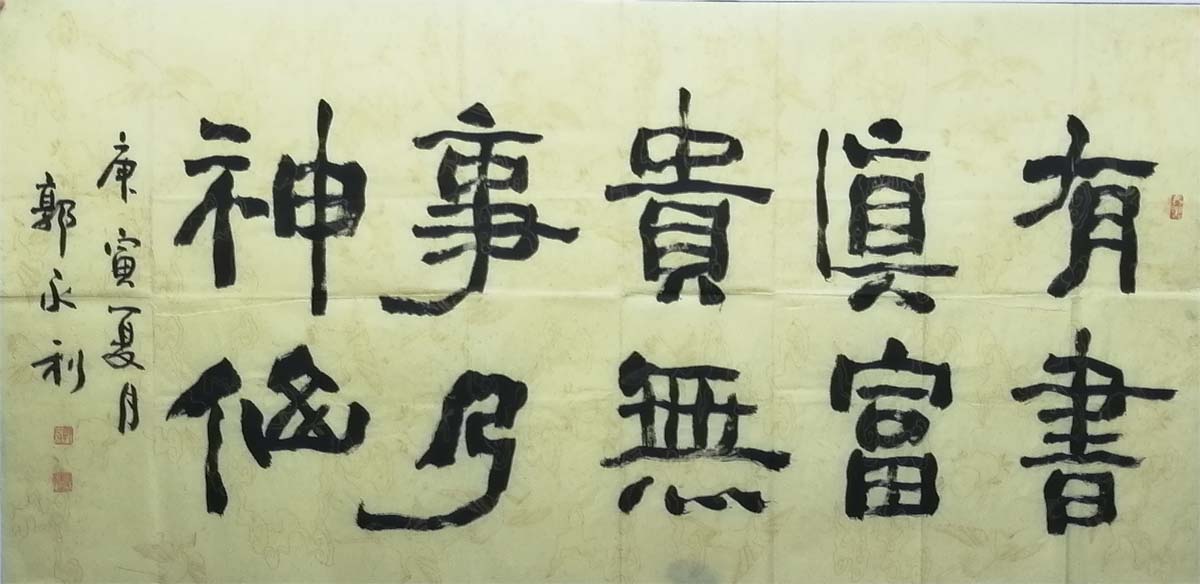 有書
眞富
貴無
事乃
神仙
庚寅夏月
郭永利